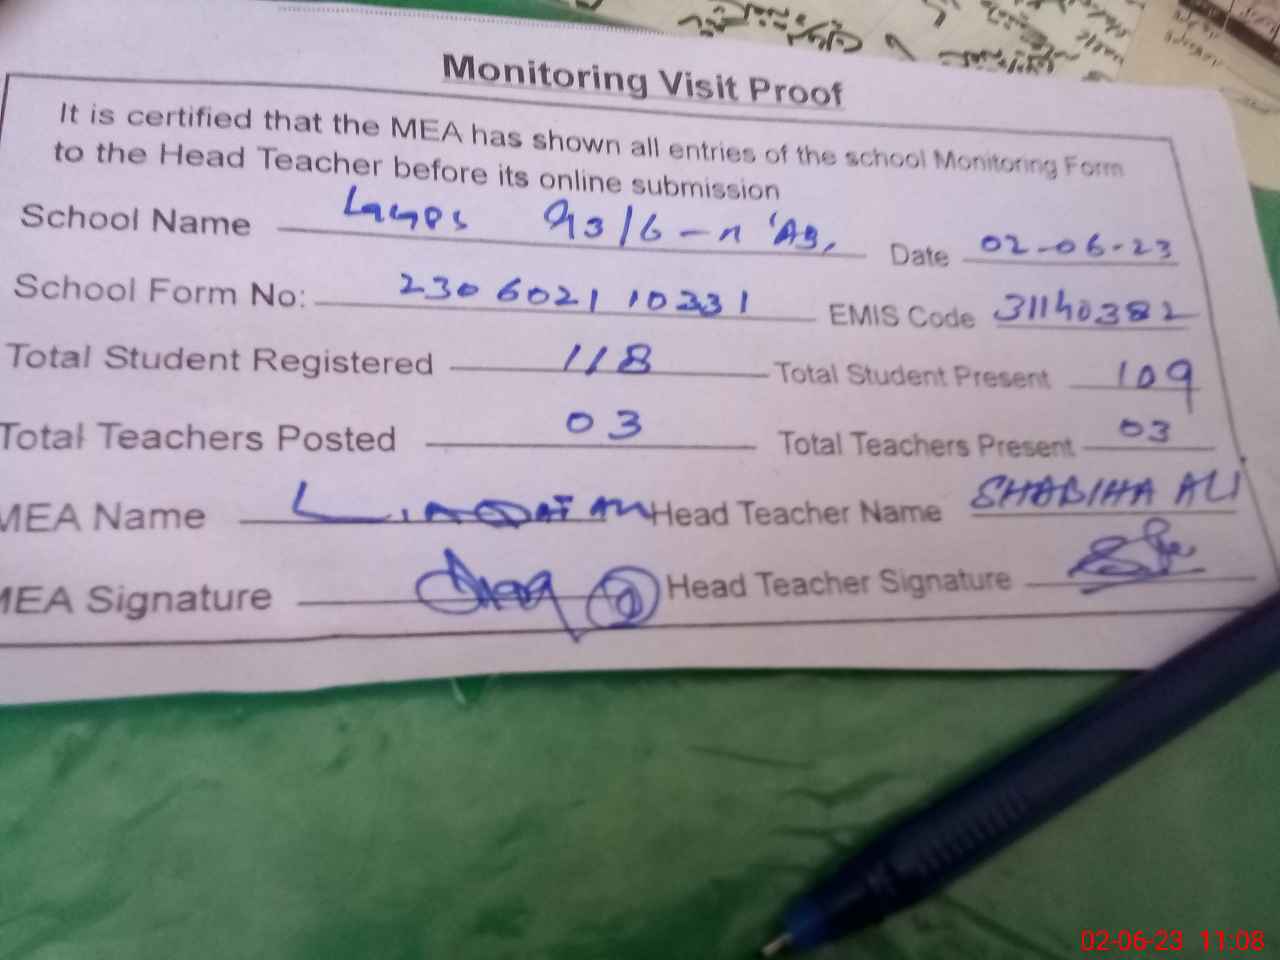 Monitoring Visit Proof
It is certified that the MEA has shown all entries of the school Monitoring Form
to the Head Teacher before its online submission
School Name 93/6-R Date 02-06-23
School Form No: 230602110331 EMIS Code 31140382
Total Student Registered 118 Total Student Present 109
Total Teachers Posted 03 Total Teachers Present 03
MEA Name Head Teacher Name SHABIHA ALI
MEA Signature Head Teacher Signature
02-06-23 11:08